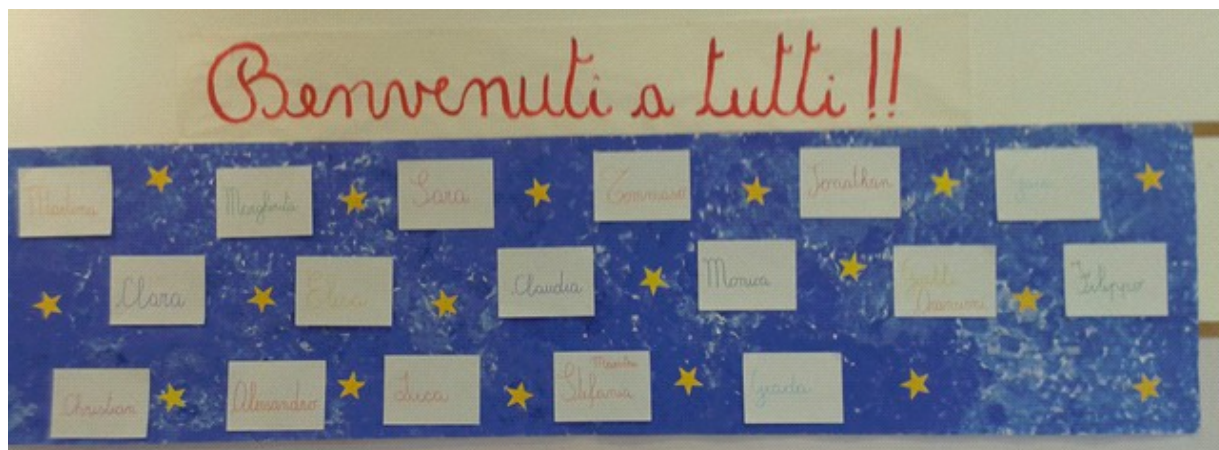 Benvenuti a tutti!!
Martina
Margherita
Sara
Tommaso
Jonathan
Gaia
Clara
Elisa
Claudia
Monica
Filippo
Christian
Alessandro
Luca
Maestra
Stefania
Giada